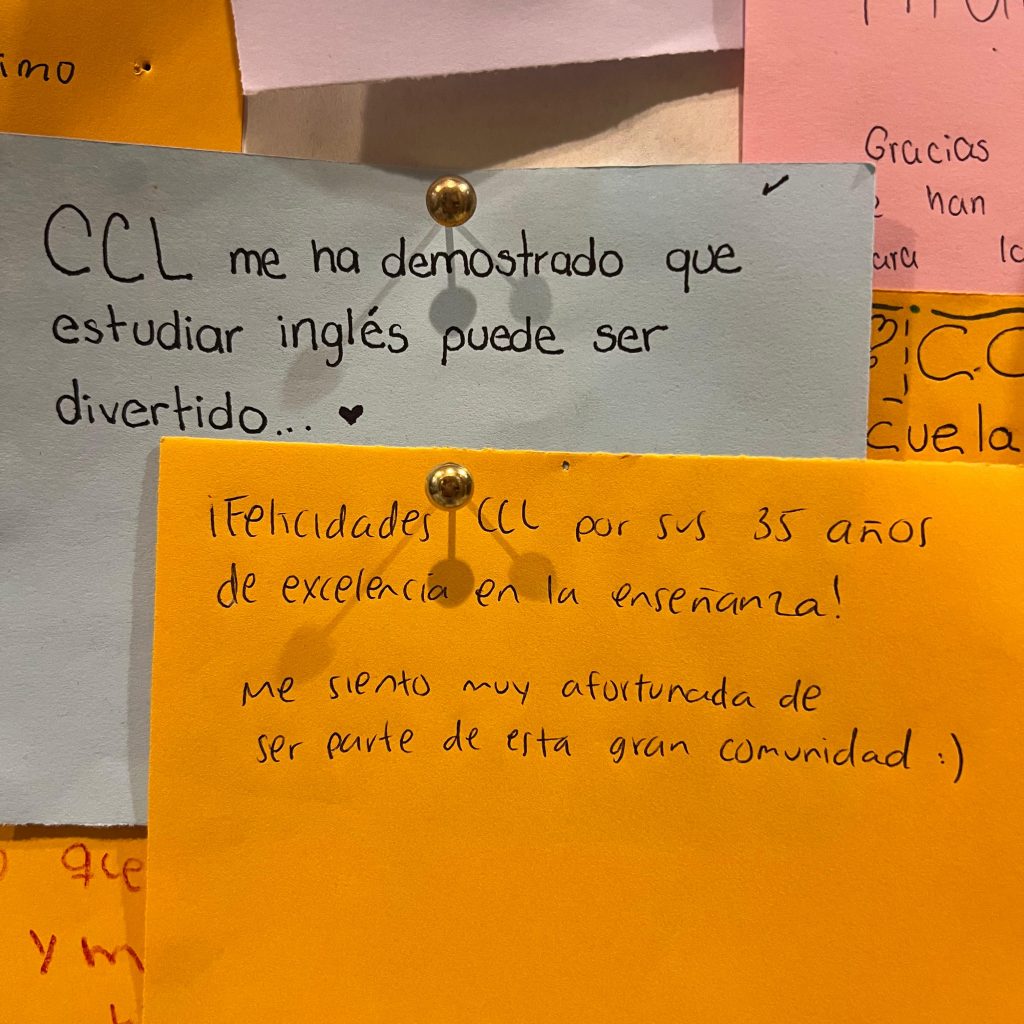 imo
Gracias
han
CCL me ha demostrado que
estudiar inglés puede ser
divertido... ♥
C.C
¡Felicidades CCL por sus 35 años
de excelencia en la enseñanza!
Me siento muy afortunada de
ser parte de esta gran comunidad :)
que
y m